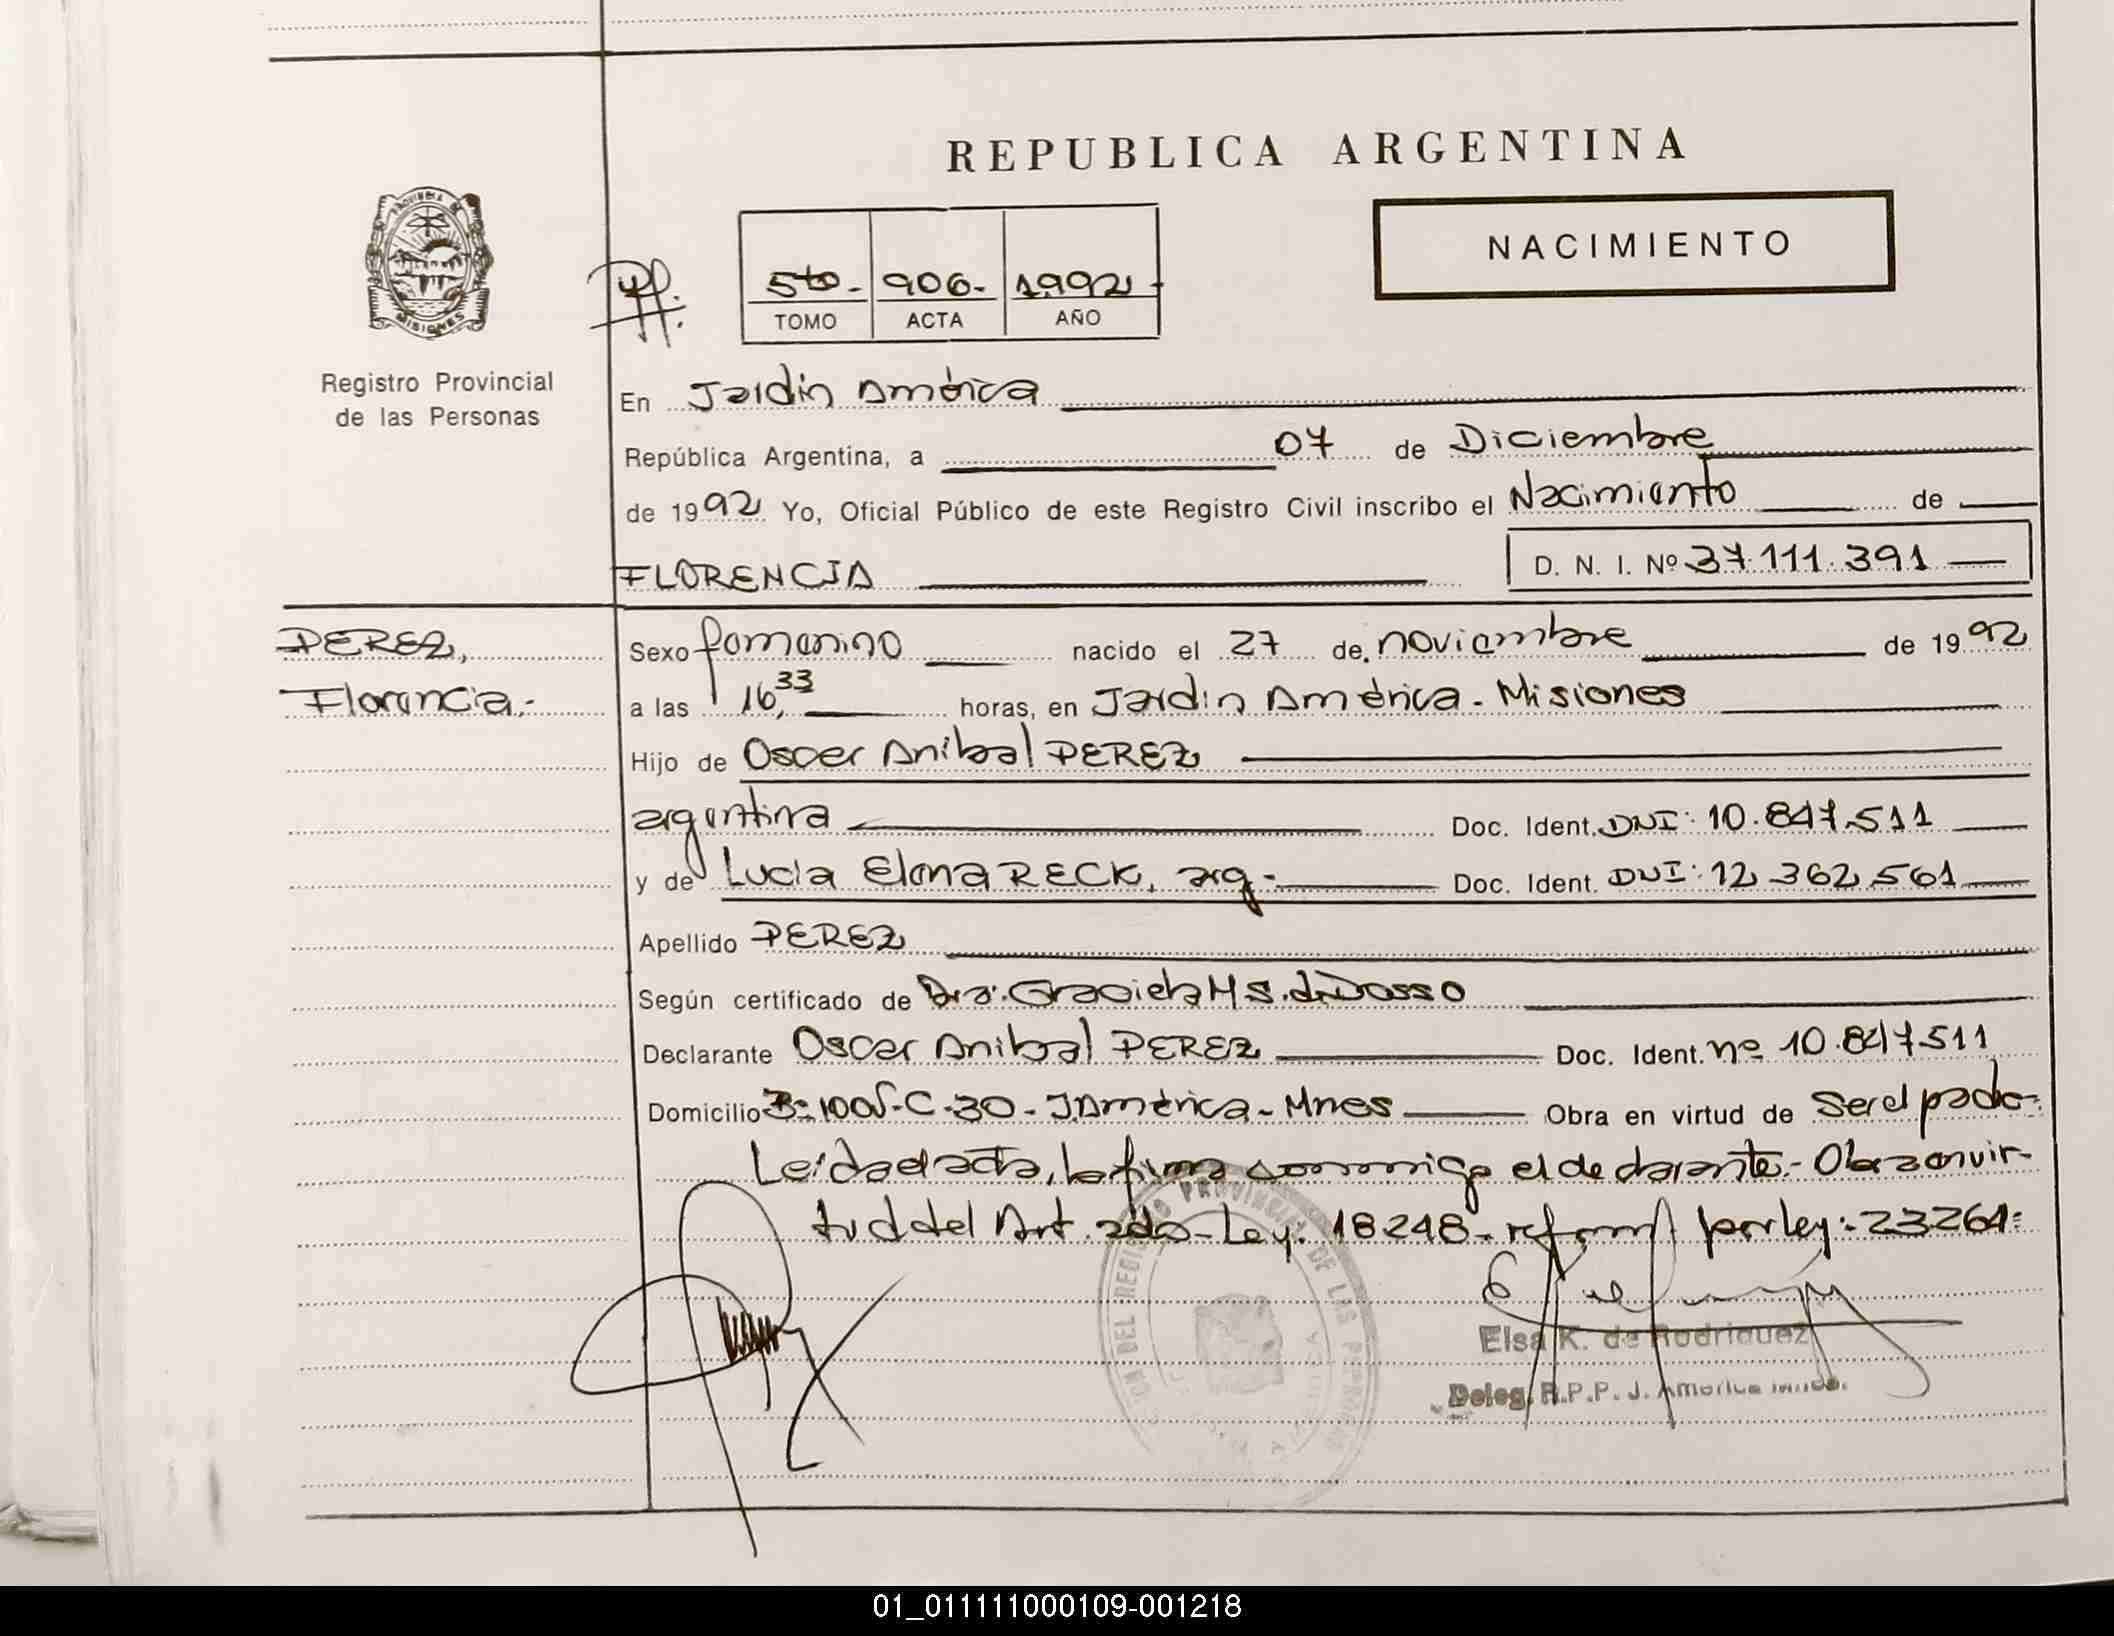 REPUBLICA ARGENTINA
PROVINCIA DE
MISIONES
Registro Provincial
de las Personas
NACIMIENTO
5to.- 906.- 1.992.-
TOMO ACTA AÑO
En Jardín América
República Argentina, a 07 de Diciembre
de 1992 Yo, Oficial Público de este Registro Civil inscribo el Nacimiento de
FLORENCIA D. N. I. Nº 37.111.391
PEREZ,
Florencia.-
Sexo femenino nacido el 27 de noviembre de 1992
a las 16,33 horas, en Jardín América - Misiones
Hijo de Oscar Anibal PEREZ
argentina Doc. Ident. DNI: 10.847.511
y de Lucia Elena RECK, arg.- Doc. Ident. DNI: 12.362.561
Apellido PEREZ
Según certificado de Dra. Graciela M S. de Dosso
Declarante Oscar Anibal PEREZ Doc. Ident. nº 10.847.511
Domicilio B= 100V-C-30- J.América - Mnes Obra en virtud de Ser el padre.
Leída el acta, la firma conmigo el declarante.- Obra en vir-
tud del Art. 2do- Ley: 18248- reform. por ley: 23.264=
REGISTRO PROVINCIAL DE LAS PERSONAS
Elsa K. de Rodriguez
Deleg. R.P.P. J. América Mnes.
01_011111000109-001218